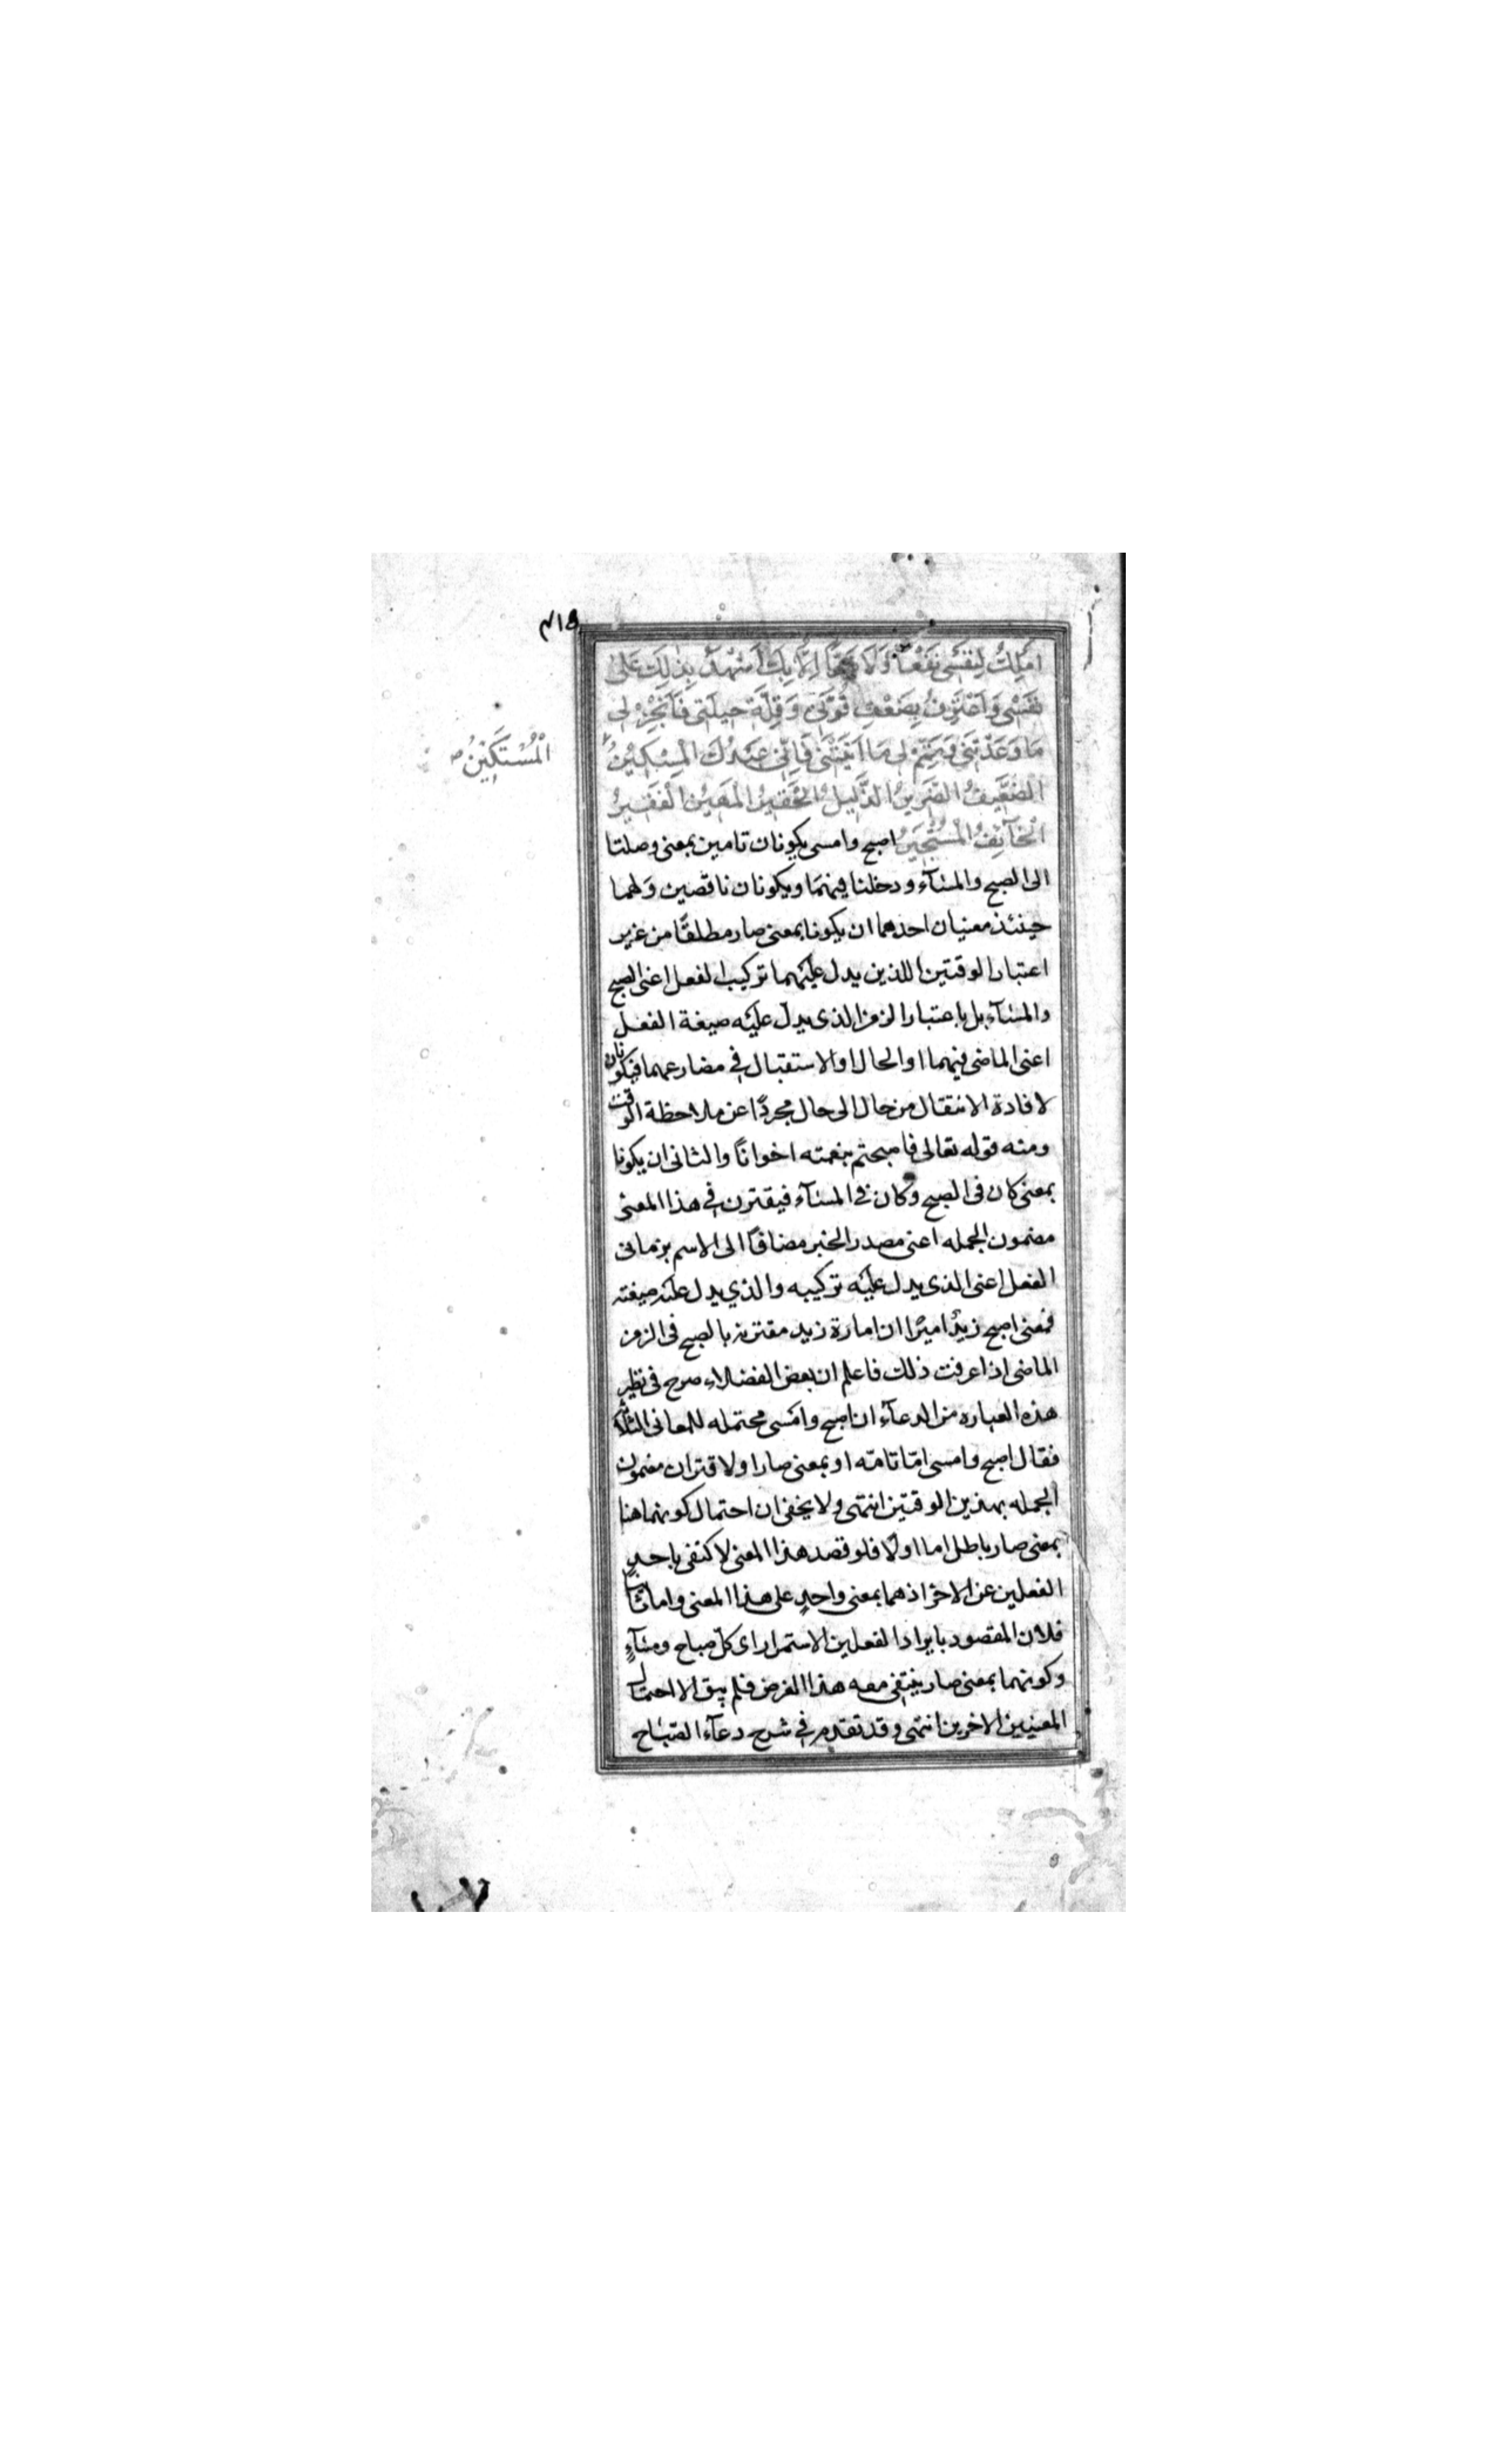 ٤١٥
اَمْلِكُ لِنَفْسی نَفْعاً وَلَا ضَرّاً اِلّا بِكَ اَشْهَدُ بِذٰلِكَ عَلٰی
نَفْسی وَاَعْتَرِفُ بِضَعْفِ قُوَّتی وَقِلَّةِ حیلَتی فَاَنْجِزْ لی
مَا وَعَدْتَنی وَتَمِّمْ لی مَا اٰتَیْتَنی فَاِنّی عَبْدُكَ الْمِسْكینُ
الْمُسْتَكینُ
الضَّعیفُ الضَّریرُ الذَّلیلُ الْحَقیرُ الْمَهینُ الْفَقیرُ
الْخآئِفُ الْمُسْتَجیرُ اصبح وامسی یكونان تامین بمعنی وصلتا
الی الصبح والمسآء ودخلنا فیهما ویكونان ناقصین ولهما
حینئذ معنیان احدهما ان یكونا بمعنی صار مطلقًا من غیر
اعتبار الوقتین اللذین یدل علیهما تركیب الفعل اعنی الصبح
والمسآء بل باعتبار الزمن الذی یدل علیه صیغة الفعل
اعنی الماضی فیهما او الحال او الاستقبال فی مضارعهما فیكونان
لافادة الانتقال من حال الی حال مجردًا عن ملاحظة الوقت
ومنه قوله تعالی فاصبحتم بنعمته اخوانًا والثانی ان یكونا
بمعنی كان فی الصبح وكان فی المسآء فیقترن فی هذا المعنی
مضمون الجمله اعنی مصدر الخبر مضافًا الی الاسم بزمانی
الفعل اعنی الذی یدل علیه تركیبه والذی یدل علیه صیغته
فمعنی اصبح زیدٌ امیرًا ان امارة زید مقترنه بالصبح فی الزمن
الماضی اذا عرفت ذلك فاعلم ان بعض الفضلاء صرح فی نظیر
هذه العباره من الدعآء ان اصبح وامسی محتمله للمعانی الثلاثه
فقال اصبح وامسی امّا تامّه او بمعنی صار او لاقتران مضمون
الجمله بهذین الوقتین انتهی ولا یخفی ان احتمال كونهما هنا
بمعنی صار باطل اما اولًا فلو قصد هذا المعنی لاكتفی باحدِ
الفعلین عن الاخر اذ هما بمعنی واحدٍ علی هذا المعنی واما ثانیا
فلان المقصود بایراد الفعلین الاستمرار ای كلّ صباح ومسآءٍ
وكونهما بمعنی صار ینتفی معه هذا الغرض فلم یبق الا احتمال
المعنیین الاخرین انتهی وقد تقدم فی شرح دعآء الصّباح